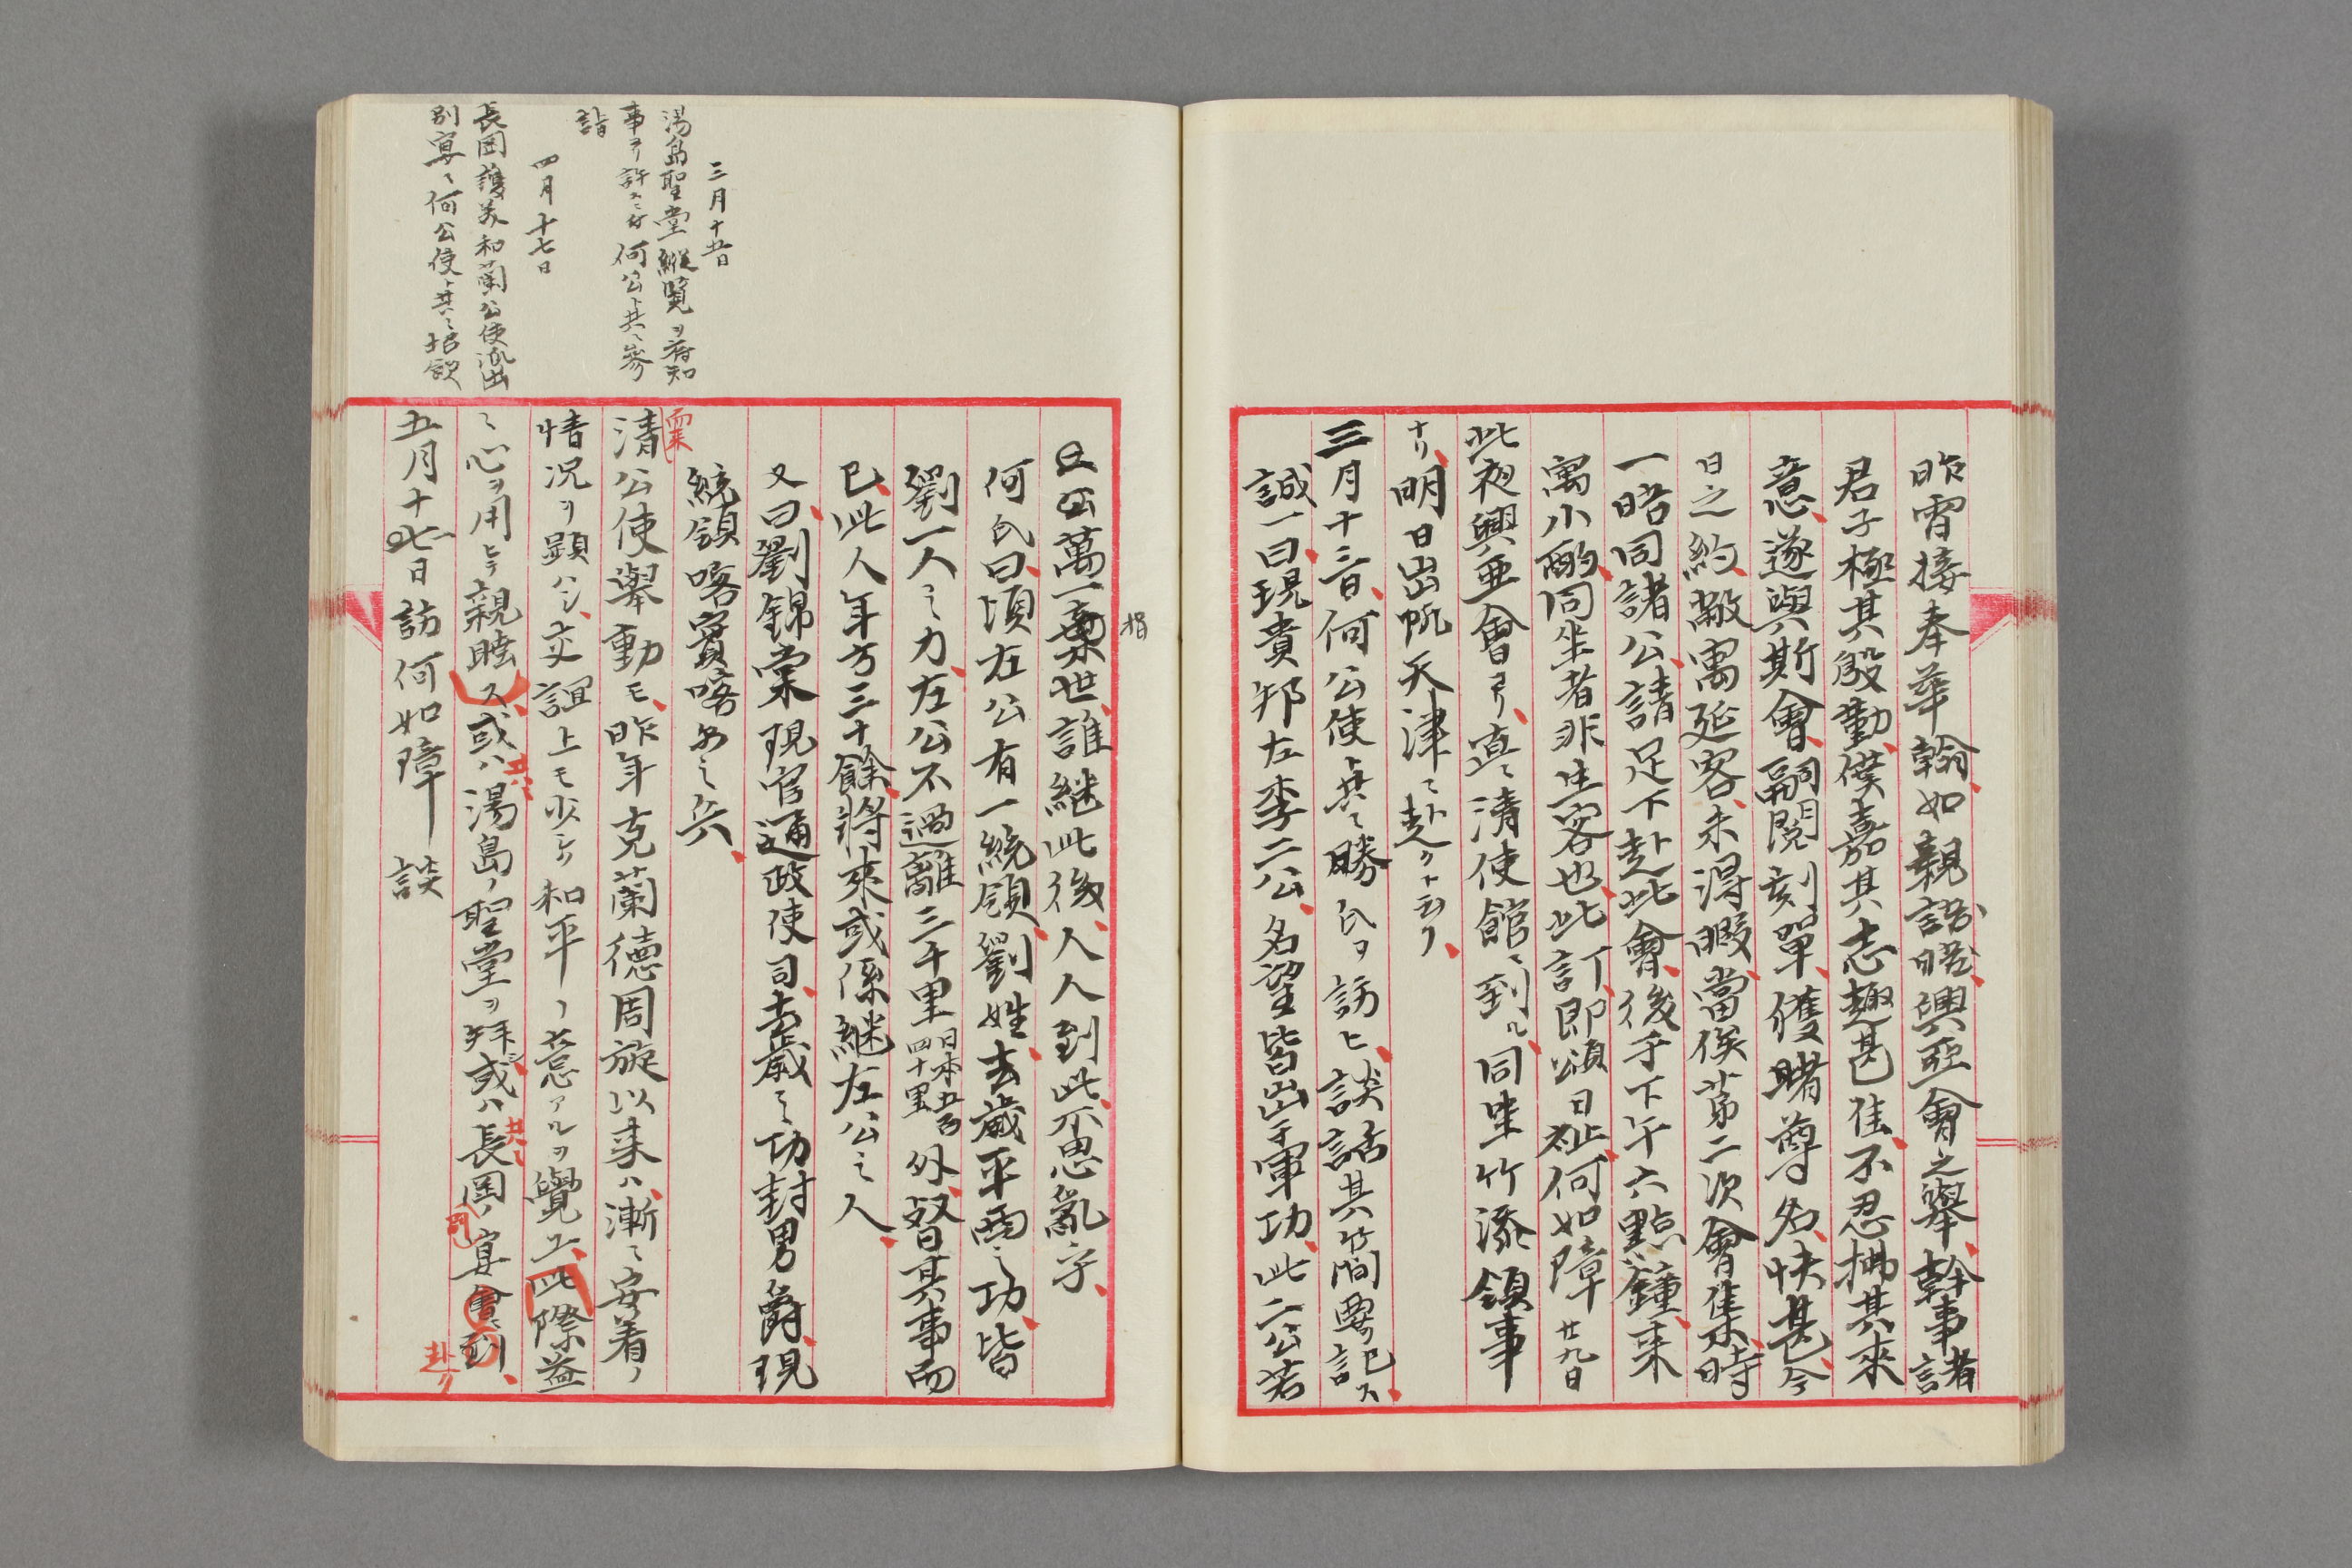 昨宵接奉華翰、如親語晤、興亜會之舉、幹事諸
君子極其殷勤、僕嘉其志趣甚佳、不忍拂其來
意、遂與斯會、嗣閲刻單、獲睹尊名、快甚、今
日之約、敝寓延客、未得暇、當俟第二次會集、時
一晤同諸公、請足下赴此會、後于下午六點鐘、来
寓小酌、同坐者非生客也、此訂、即頌日祉、何如璋 廿九日
此夜興亜會ヨリ、直ニ清使館ニ到ル、同坐竹添領事
ナリ、明日出帆天津ニ赴クト云フ、
三月十三日、何公使ト共ニ勝氏ヲ訪ヒ、談話其簡要ヲ記ス、
誠一曰、現貴邦左李二公、名望皆出軍功、此二公若
萬一棄世、誰継此後、人人到此、不思亂字、
捐
何氏曰、頃左公有一統領、劉姓、去歳平西之功、皆
劉一人之力、左公不過離三千里 日本五百四十里 外、督其事而
已、此人年方三十餘、將來或係継左公之人、
又曰、劉錦棠現官通政使司、去歳之功封男爵、現
統領喀實喀尔之兵、
清公使舉動モ、昨年克蘭徳周旋以来ハ、漸ニ安着ノ
情况ヲ顕ハシ、交誼上モ少シク和平ノ意アルヲ覺ユ、此際益
々心ヲ用ヒテ親睦ス、或ハ湯島ノ聖堂ヲ拜シ、或ハ長岡ノ宴會ニ到ル、
共ニ
共ニ
赴ク
五月十七日訪何如璋談
三月十五日
湯島聖堂縦覧ヲ府知
事ヨリ許サニ付何公ト共ニ參
詣
四月十七日
長岡護美和蘭公使派出
別宴ニ何公使ト共ニ招飲